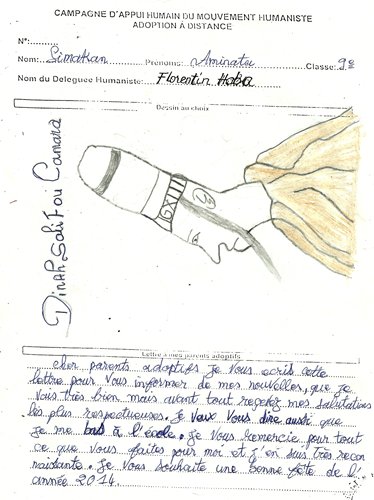 CAMPAGNE D'APPUI HUMAIN DU MOUVEMENT HUMANISTE
ADOPTION A DISTANCE
N°:
Nom: Simakan Prénoms: Aminata Classe: 9e
Nom du Deleguee Humaniste: Florentin Haba
Dessin au choix
Lettre a mes parents adoptifs
cher parents adoptifs je vous ecris cette
lettre pour vous informer de mes nouvelles, que je
vous très bien. mais avant tout recevez mes salutations
les plus respectueuses. Je veux vous dire aussi que
je me à l'école. Je vous remercie pour tout
ce que vous faites pour moi et j'en suis très recon
naissante. Je vous souhaite une bonne fête de l'
année 2014